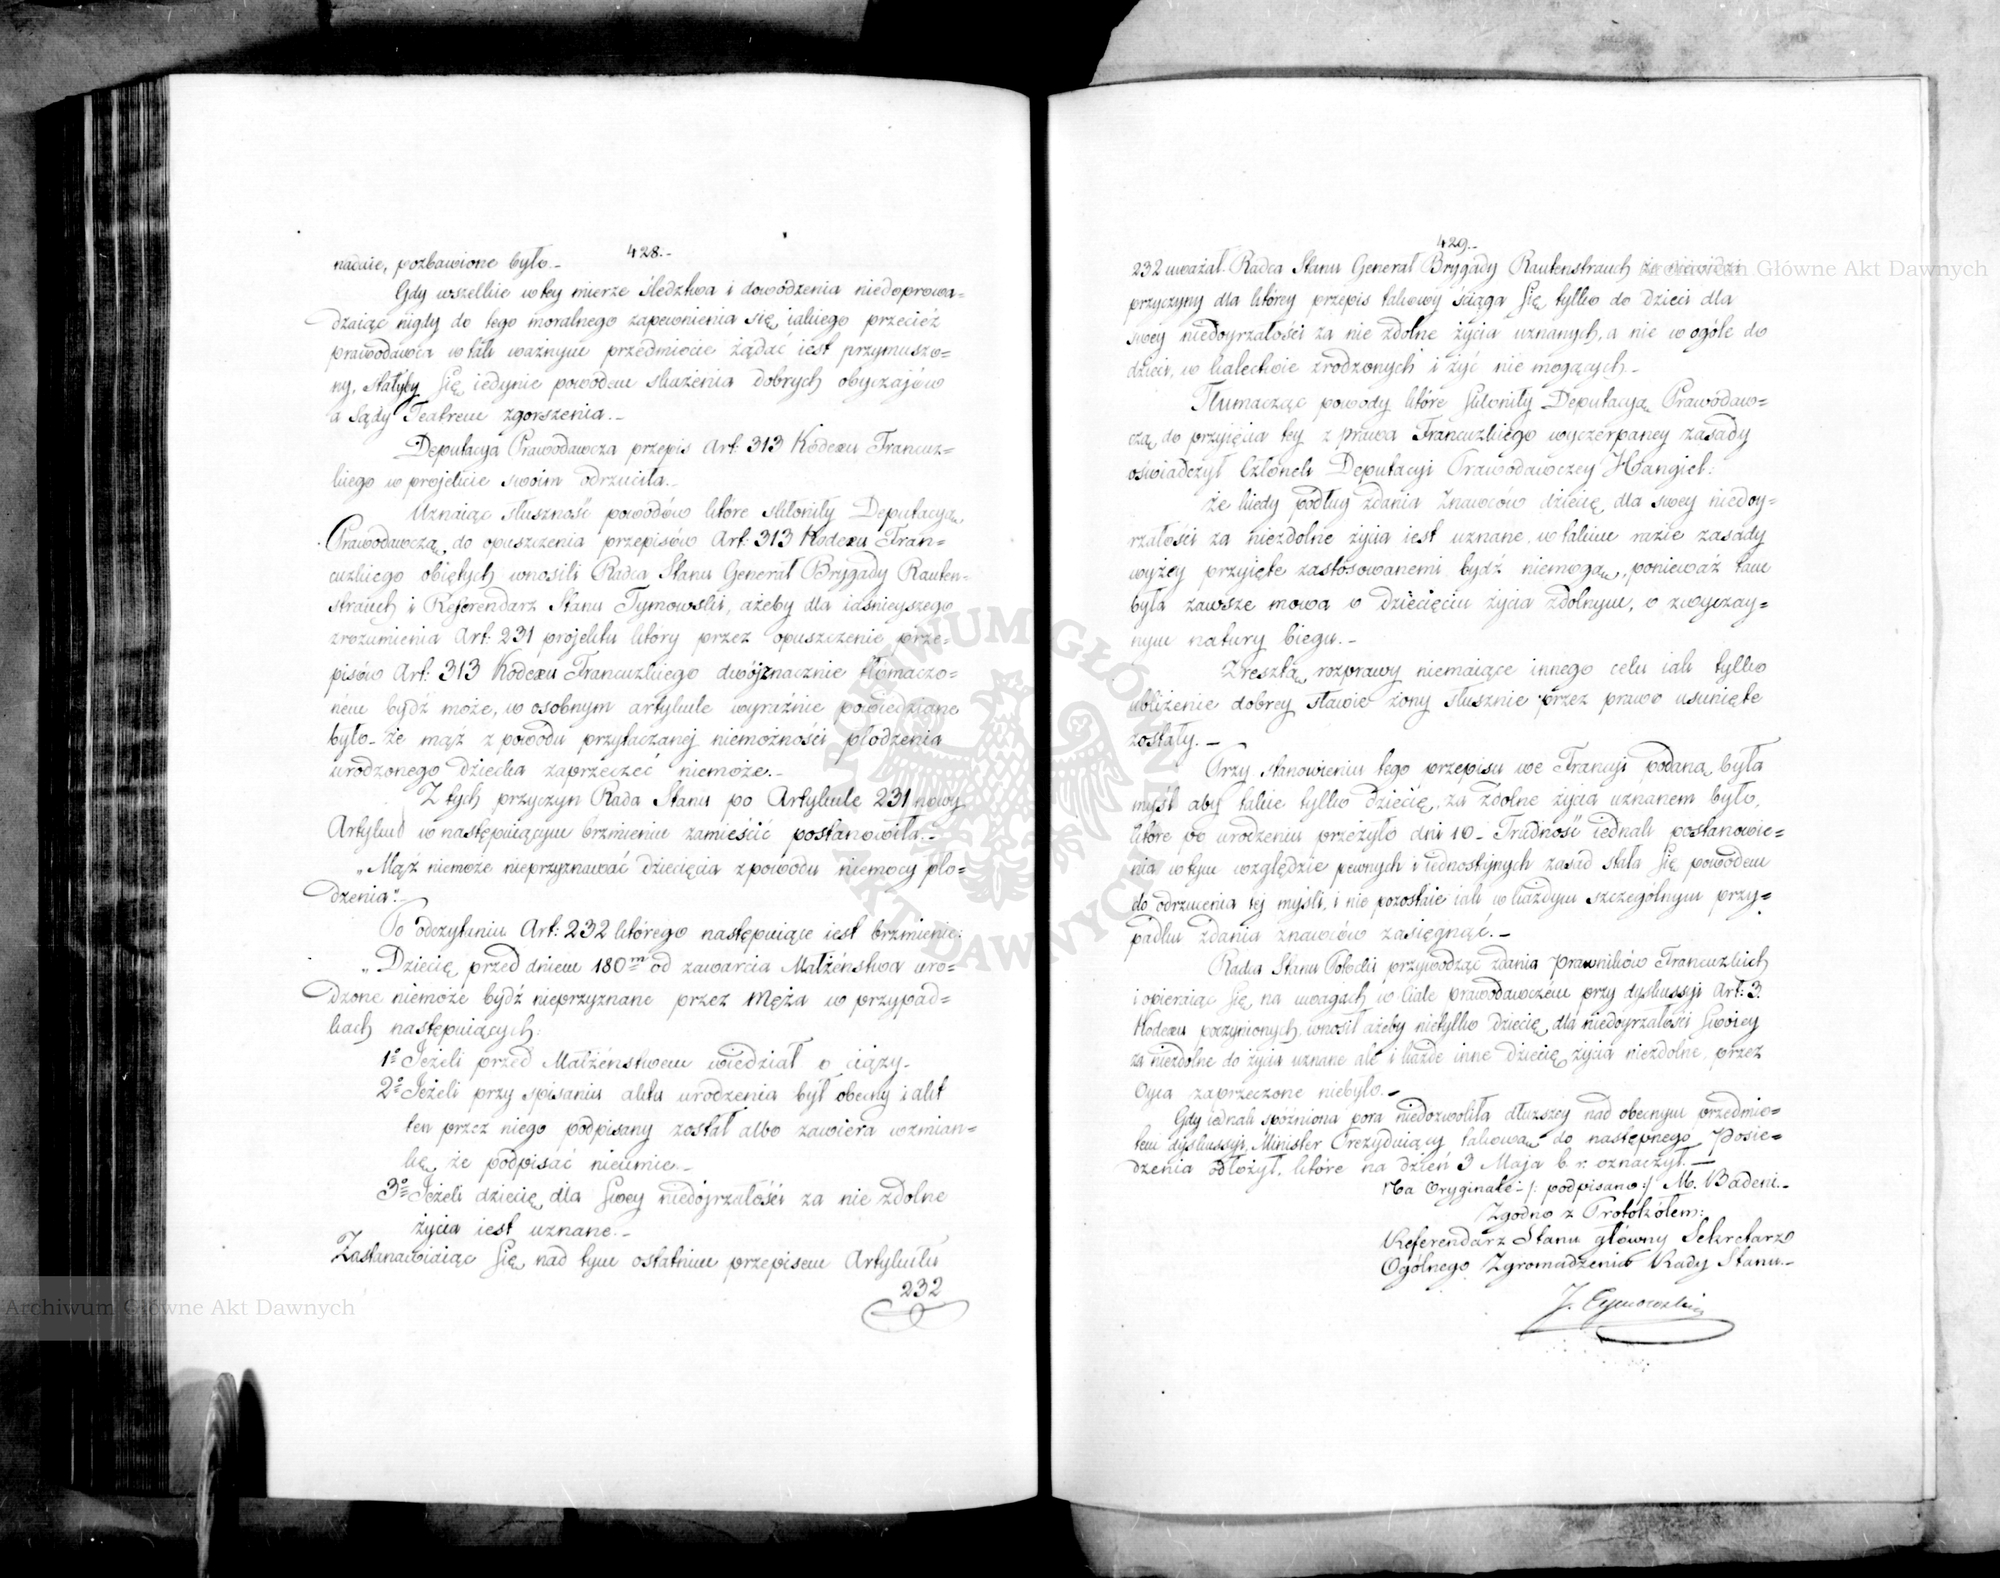 428.-
nadaie, pozbawione było.-
Gdy wszelkie w tey mierze śledztwa i dowodzenia niedoprowa=
dzaiąc nigdy do tego moralnego zapewnienia się, iakiego przecież
prawodawca w tak ważnym przedmiocie żądać iest przymuszo=
ny, stałyby się iedynie powodem skażenia dobrych obyczaiów
a Sądy Teatrem zgorszenia.-
Deputacya Prawodawcza przepis Art: 313 Kodexu Francuz=
kiego w projekcie swoim odrzuciła.-
Uznaiąc słuszność powodów które skłoniły Deputacyą
Prawodawczą, do opuszczenia przepisów Art: 313 Kodexu Fran=
cuzkiego obiętych wnosili Radca Stanu Generał Brygady Rauten=
strauch i Referendarz Stanu Tymowski, ażeby dla iaśnieyszego
zrozumienia Art: 231 projektu który przez opuszczenie prze=
pisów Art: 313 Kodexu Francuzkiego dwójznacznie tłómaczo=
ném bydź może, w osobnym artykule wyraźnie powiedziane
było- że mąż z powodu przytaczanej niemożności płodzenia
urodzonego dziecka zaprzeczeć niemoże.-
Z tych przyczyn Rada Stanu po Artykule 231 nowy
Artykuł w następuiącym brzmieniu zamieścić postanowiła.-
„Mąż niemoże nieprzyznawać dziecięcia z powodu niemocy pło=
dzenia".-
Po odczytaniu Art: 232 którego następuiące iest brzmienie:
„Dziecię przed dniem 180m od zawarcia Małżeństwa uro=
dzone niemoże bydź nieprzyznane przez Męża w przypad=
kach następuiących:
1o Jeżeli przed Małżeństwem wiedział o ciąży.
2o Jeżeli przy spisaniu aktu urodzenia był obecny i akt
ten przez niego podpisany został albo zawiera wzmian=
kę, że podpisać nieumie.-
3o Jeżeli dziecię, dla swey niedojrzałości za nie zdolne
życia iest uznane.-
Zastanawiaiąc się nad tym ostatnim przepisem Artykułu
232
429.-
232 uważał Radca Stanu Generał Brygady Rautenstrauch że niewidzi
przyczyny dla którey przepis takowy ściąga się tylko do dzieci dla
swey niedoyrzałości za nie zdolne życia uznanych, a nie w ogóle do
dzieci, w kalectwie zrodzonych i żyć nie mogących.-
Tłumacząc powody które skłoniły Deputacyą Prawodaw=
czą, do przyięcia tey z prawa Francuzkiego wyczerpaney zasady
oświadczył Członek Deputacyi Prawodawczey Hangiel:
że kiedy podług zdania znawców dziecię dla swey niedoy=
rzałości za niezdolne życia iest uznane, w takim razie zasady
wyżey przyięte zastosowanemi bydź niemogą, ponieważ tam
była zawsze mowa o dziecięciu życia zdolnym, o zwyczay=
nym natury biegu.-
Zresztą, rozprawy niemaiące innego celu iak tylko
ubliżenie dobrey sławie żony słusznie przez prawo usunięte
zostały.-
Przy stanowieniu tego przepisu we Francyi podaną była
myśl aby takie tylko dziecię, za zdolne życia uznanem było,
które po urodzeniu przeżyło dni 10- Trudność iednak postanowie=
nia w tym względzie pewnych i iednostaynych zasad stała się powodem
do odrzucenia tej myśli, i nie pozostaie iak w każdym szczególnym przy=
padku zdania znawców zasięgnąć.-
Radca Stanu Potocki przywodząc zdania Prawników Francuzkich
i opieraiąc się na uwagach w ciele prawodawczém przy dyskussyi Art: 3.
Kodexu poczynionych, wnosił ażeby nietylko dziecię dla niedoyrzałości swoiey
za niezdolne do życia uznane ale i każde inne dziecię życia niezdolne, przez
Oyca zaprzeczone niebyło.-
Gdy iednak spóźniona pora niedozwoliła dłuższey nad obecnym przedmio=
tem dyskussyi, Minister Prezyduiący takową do następnego Posie=
dzenia odłożył, które na dzień 3 Maja b. r. oznaczył.-
Na Oryginale- /: podpisano :/ M. Badeni.-
Zgodno z Protokółem:
Referendarz Stanu główny Sekretarz
Ogólnego Zgromadzenia Rady Stanu.-
J. Tymowski
Archiwum Główne Akt Dawnych
Archiwum Główne Akt Dawnych
ARCHIWUM GŁÓWNE AKT DAWNYCH